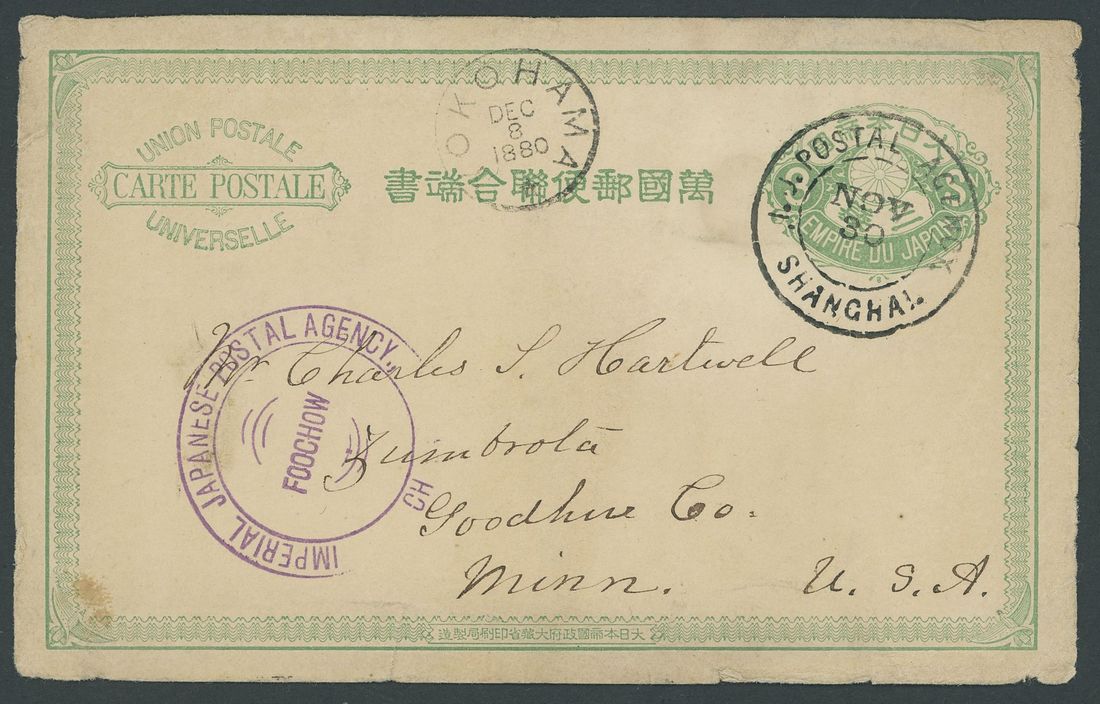 UNION POSTALE
CARTE POSTALE
UNIVERSELLE
書端合聯便郵國萬
YOKOHAMA
DEC
8
1880
EMPIRE DU JAPON
I.J. POSTAL AGENCY
NOV
30
SHANGHAI.
IMPERIAL JAPANESE POSTAL AGENCY,
FOOCHOW
Mr Charles S. Hartwell
Zumbrota
Goodhue Co.
Minn. U. S. A.
造製局刷印省藏大府政國帝本日大